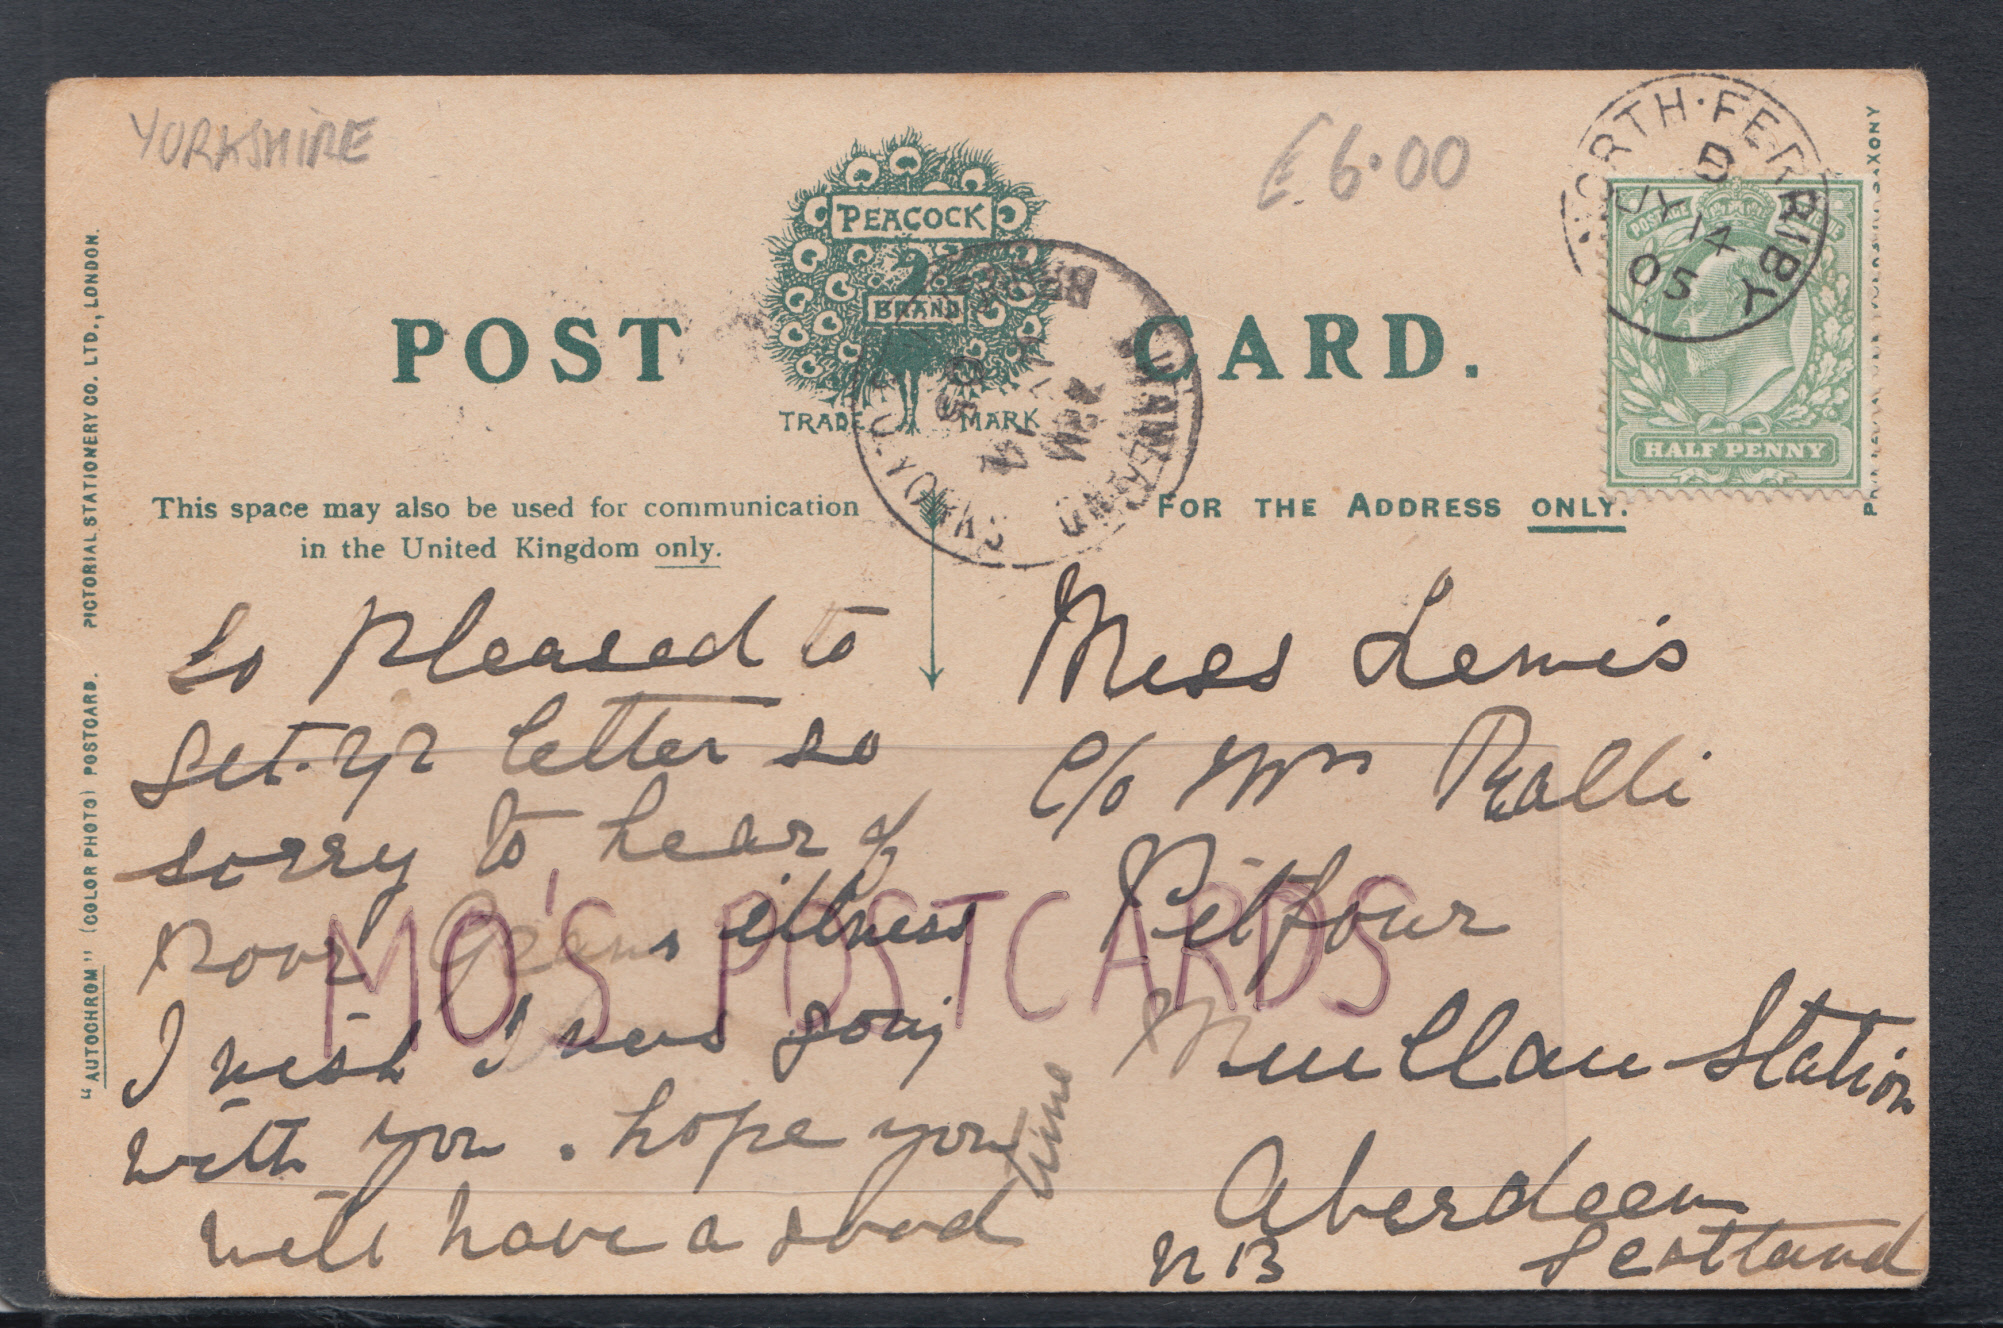 YORKSHIRE
£6.00
PEACOCK
BRAND
TRADE MARK
POST CARD.
NORTH·FERRIBY
D
JY 14
05
HALF PENNY
This space may also be used for communication
in the United Kingdom only.
FOR THE ADDRESS ONLY.
"AUTOCHROM" (COLOR PHOTO) POSTCARD. PICTORIAL STATIONERY CO. LTD., LONDON.
So pleased to
get yr letter so
sorry to hear of
poor illness
I wish I was going
with you. hope you
will have a good
time
Miss Lewis
C/o Mrs Ralli
Pitfour
Station
Aberdeen
NB Scotland
MO'S POSTCARDS